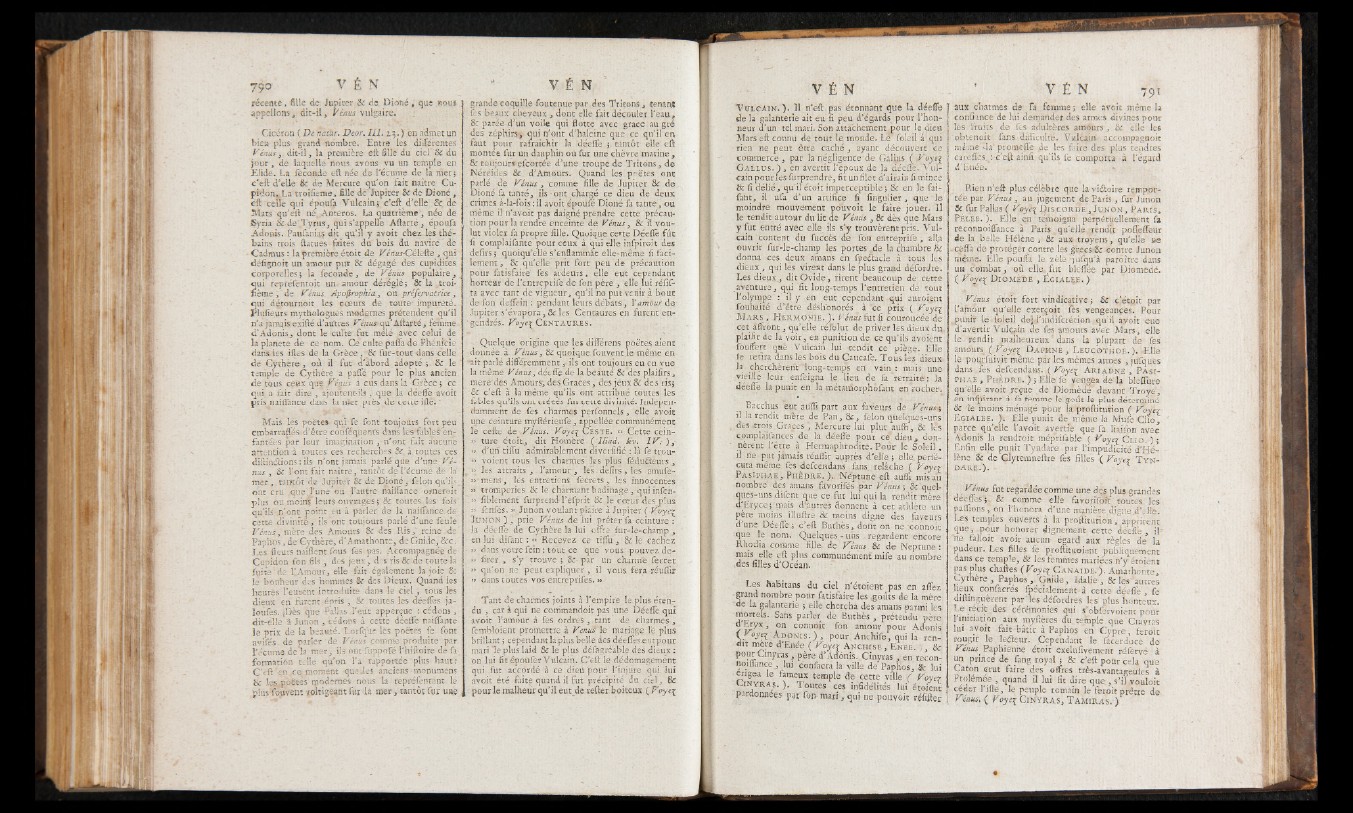 790 V É N
récente, fille de Jupiter & de Dioné, que nous
appellons, dit-il, Vénus vulgaire.
Cicéron (De natur. Deor. III. 23.) en admet un
bien plus grand nombre. Entre les différentes
Vénus, dit-il, la première est fille du ciel & du
jour, de laquelle nous avons vu un temple en
Elide. La seconde est née de l'écume de la mer;
c'est d'elle & de Mercure qu'on fait naître Cu-
pidon. La troisième, fille de Jupiter & de Dioné,
est celle qui épousa Vulcain; c'est d'elle & de
Mars qu'est né Anteros. La quatrième, née de
Syria & de Tyrus, qui s'appelle Astarte, épousa
Adonis. Pausanias dit qu'il y avoit chez les thé-
bains trois statues faites du bois du navire de
Cadmus : la première étoit de Vénus-Céleste, qui
désignoit un amour pur & dégagé des cupidités
corporelles; la seconde, de Vénus populaire,
qui représentoit un amour déréglé; & la troi-
sième, de Vénus Apostrophia, ou préservatrice,
qui détournoit les cœurs de toute impureté.
Plusieurs mythologues modernes prétendent qu'il
n'a jamais existé d'autres Vénus qu'Astarté, femme
d'Adonis, dont le culte fut mêlé avec celui de
la planete de ce nom. Ce culte passa de Phénicie
dans les isles de la Grèce, & sur-tout dans celle
de Cythère, où il fut d'abord adopté; & le
temple de Cythère a passé pour le plus ancien
de tous ceux que Vénus a eus dans la Grèce; ce
qui a fait dire, ajoutent-ils, que la déesse avoit
pris naissance dans la mer près de cette isle.
Mais les poëtes qui se sont toujours fort peu
embarrassés d'être conséquents dans les fables en-
fantées par leur imagination, n'ont fait aucune
attention à toutes ces recherches & à toutes ces
distinctions : ils n'ont jamais parlé que d'une Vé-
nus, & l'ont fait naître, tantôt de l'écume de la
mer, tantôt de Jupiter & de Dioné, selon qu'ils
ont cru que l'une ou l'autre naissance orneroit
plus ou moins leurs ouvrages; & toutes les fois
qu'ils n'ont point eu à parler de la naissance de
cette divinité, ils ont toujours parlé d'une seule
Vénus, mère des Amours & des Ris, reine de
Paphos, de Cythère, d'Amathonte, de Gnide, &c.
Les fleurs naissent sous ses pas. Accompagnée de
Cupidon son fils, des jeux, des ris & de toute la
suite de l'Amour, elle fait également la joie &
le bonheur des hommes & des Dieux. Quand les
heures l'eurent introduite dans le ciel, tous les
dieux en furent épris, & toutes les déesses ja-
louses. Dès que Pallas l'eut apperçue : cédons,
dit-elle à Junon, cédons à cette déesse naissante
le prix de la beauté. Lorsque les poëtes se sont
avisés de parler de Vénus comme produite par
l'écume de la mer, ils ont supposé l'histoire de sa
formation telle qu'on l'a rapportée plus haut :
C'est en ce moment que les anciens monuments
& les poëtes modernes nous la représentent le
plus souvent voltigeant sur la mer, tantôt sur une
V É N
grande coquille soutenue par des Tritons, tenant
ses beaux cheveux, dont elle fait découler l'eau,
& parée d'un voile qui flotte avec grace au gré
des zéphirs, qui n'ont d'haleine que ce qu'il en
faut pour rafraîchir la déesse; tantôt elle est
montée sur un dauphin ou sur une chèvre marine,
& toujours escortée d'une troupe de Tritons, de
Néréides & d'Amours. Quand les poëtes ont
parlé de Vénus, comme fille de Jupiter & de
Dioné sa tante, ils ont chargé ce dieu de deux
crimes à-la-fois : il avoit épousé Dioné sa tante, ou
même il n'avoit pas daigné prendre cette précau-
tion pour la rendre enceinte de Vénus, & il vou-
lut violer sa propre fille. Quoique cette Déesse fût
si complaisante pour ceux à qui elle inspiroit des
desirs; quoiqu'elle s'enflammât elle-même si faci-
lement, & qu'elle prît fort peu de précaution
pour satisfaire ses ardeurs, elle eut cependant
horreur de l'entreprise de son père, elle lui résis-
ta avec tant de vigueur, qu'il ne put venir à bout
de son dessein : pendant leurs débats, l'amour de
Jupiter s'évapora, & les Centaures en furent en-
gendrés. Voyez CENTAURES.
Quelque origine que les différens poëtes aient
donnée à Vénus, & quoique souvent le même en
ait parlé différemment, ils ont toujours eu en vue
la même Vénus, déesse de la beauté & des plaisirs,
mère des Amours, des Graces, des jeux & des ris;
& c'est à la même qu'ils ont attribué toutes les
fables qu'ils ont créées sur cette divinité. Indépen-
damment de ses charmes personnels, elle avoit
une ceinture mystérieuse, appellée communément
le ceste de Vénus. Voyez CESTE. « Cette cein-
» ture étoit, dit Homère (Iliad. liv. IV.),
» d'un tissu admirablement diversifié : là se trou-
» voient tous les charmes les plus séducteurs,
» les attraits, l'amour, les desirs, les amuse-
» mens, les entretiens secrets, les innocentes
» tromperies & le charmant badinage, qui insen-
» siblement surprend l'esprit & le cœur des plus
» sensés. » Junon voulant plaire à Jupiter (Voyez
JUNON), prie Vénus de lui prêter sa ceinture :
la déesse de Cythère la lui offre sur-le-champ,
en lui disant : « Recevez ce tissu, & le cachez
» dans votre sein : tout ce que vous pouvez de-
» sirer, s'y trouve; & par un charme secret
» qu'on ne peut expliquer, il vous fera réussir
» dans toutes vos entreprises. »
Tant de charmes joints à l'empire le plus éten-
du, car à qui ne commandoit pas une Déesse qui
avoit l'amour à ses ordres, tant de charmes,
sembloient promettre à Vénus le mariage le plus
brillant; cependant la plus belle des déesses eut pour
mari le plus laid & le plus désagréable des dieux :
on lui fit épouser Vulcain. C'est le dédomagement
qui fut accordé à ce dieu pour l'injure qui lui
avoit été faite quand il fut précipité du ciel, &
pour le malheur qu'il eut de rester boiteux (Voyez
V É N
VULCAIN.). Il n'est pas étonnant que la déesse
de la galanterie ait eu si peu d'égards pour l'hon-
neur d'un tel mari. Son attachement pour le dieu
Mars est connu de tout le monde. Le soleil à qui
rien ne peut être caché, ayant découvert ce
commerce, par la négligence de Gallus (Voyez
GALLUS.), en avertit l'époux de la déesse. Vul-
cain pour les surprendre, fit un filet d'airain si mince
& si délié, qu'il étoit imperceptible; & en le fai-
sant, il usa d'un artifice si singulier, que le
moindre mouvement pouvoit le faire jouer. Il
le tendit autour du lit de Vénus, & dès que Mars
y fut entré avec elle ils s'y trouvèrent pris. Vul-
cain content du succès de son entreprise, alla
ouvrir sur-le-champ les portes de la chambre &
donna ces deux amans en spectacle à tous les
dieux, qui les virent dans le plus grand désordre.
Les dieux, dit Ovide, rirent beaucoup de cette
aventure, qui fit long-temps l'entretien de tout
l'olympe : il y en eut cependant qui auroient
souhaité d'être déshonorés à ce prix (Voyez
MARS, HERMONIE.). Vénus fut si courroucée de
cet affront, qu'elle résolut de priver les dieux du
plaisir de la voir, en punition de ce qu'ils avoient
souffert que Vulcain lui tendît ce piège. Elle
se retira dans les bois du Caucase. Tous les dieux
la cherchèrent long-temps en vain : mais une
vieille leur enseigna le lieu de sa retraite; la
déesse la punit en la métamorphosant en rocher.
Bacchus eut aussi part aux faveurs de Vénus;
il la rendit mère de Pan, &, selon quelques-uns
des trois Graces, Mercure lui plut aussi, & les
complaisances de la déesse pour ce dieu, don-
nèrent l'être à Hermaphrodite. Pour le Soleil,
il ne put jamais réussir auprès d'elle; elle persé-
cuta même ses descendans sans relâche (Voyez
PASIPHAE, PHÈDRE.). Neptune est aussi mis au
nombre des amans favorisés par Vénus; & quel-
ques-uns disent que ce fut lui qui la rendit mère
d'Eryce; mais d'autres donnent à cet athlète un
père moins illustre & moins digne des faveurs
d'une Déesse; c'est Buthès, dont on ne connoît
que le nom. Quelques-uns regardent encore
Rhodia comme fille de Vénus & de Neptune :
mais elle est plus communément mise au nombre
des filles d'Océan.
Les habitans du ciel n'étoient pas en assez
grand nombre pour satisfaire les goûts de la mère
de la galanterie; elle chercha des amans parmi les
mortels. Sans parler de Buthès, prétendu père
d'Eryx, on connoît son amour pour Adonis
(Voyez ADONIS.), pour Anchise, qui la ren-
dit mère d'Enée (Voyez ANCHISE, ENÉE.), &
pour Cinyras, père d'Adonis. Cinyras, en recon-
noissance, lui consacra la ville de Paphos, & lui
érigea le fameux temple de cette ville (Voyez
CINYRAS.). Toutes ces infidélités lui étoient
pardonnées par son mari, qui ne pouvoit résister
V É N 791
aux charmes de sa femme; elle avoit même la
confiance de lui demander des armes divines pour
les fruits de ses adultères amours, & elle les
obtenoit sans difficulté. Vulcain accompagnoit
même sa promesse de les faire des plus tendres
caresses : c'est ainsi qu'ils se comporta à l'égard
d'Enée.
Rien n'est plus célèbre que la victoire rempor-
tée par Vénus, au jugement de Paris, sur Junon
& sur Pallas (Voyez DISCORDE, JUNON, PARIS,
PÉLÉE.). Elle en témoigna perpétuellement sa
reconnoissance à Paris qu'elle rendit possesseur
de la belle Hélène, & aux troyens, qu'elle ne
cessa de protéger contre les grecs & contre Junon
même. Elle poussa le zèle jusqu'à paroître dans
un combat, où elle fut blessée par Diomède.
(Voyez DIOMÈDE, EGIALÉE.)
Vénus étoit fort vindicative; & c'étoit par
l'amour qu'elle exerçoit ses vengeances. Pour
punir le soleil de l'indiscrétion qu'il avoit eue
d'avertir Vulcain de ses amours avec Mars, elle
le rendit malheureux dans la plupart de ses
amours (Voyez DAPHNE, LEUCOTHOE.). Elle
le poursuivit même par les mêmes armes, jusques
dans ses descendans. (Voyez ARIADNE, PASI-
PHAE, PHÈDRE.); Elle se vengea de la blessure
qu'elle avoit reçue de Diomède devant Troye,
en inspirant à sa femme le goût le plus déterminé
& le moins ménagé pour la prostitution (Voyez
EGIALÉE.). Elle punit de même la Muse Clio,
parce qu'elle l'avoit avertie que sa liaison avec
Adonis la rendroit méprisable (Voyez CLIO.);
Enfin elle punit Tyndare par l'impudicité d'Hé-
lène & de Clytemnestre ses filles (Voyez TYN-
DARE.).
Vénus fut regardée comme une des plus grandes
déesses; & comme elle favorisoit toutes les
passions, on l'honora d'une manière digne d'elle.
Les temples ouverts à la prostitution, apprirent
que, pour honorer dignement cette déesse, il
ne falloit avoir aucun égard aux règles de la
pudeur. Les filles se prostituoient publiquement
dans ce temple, & les femmes mariées n'y étoient
pas plus chastes (Voyez CANAIDE.). Amathonte,
Cythère, Paphos, Gnide, Idalie, & les autres
lieux consacrés spécialement à cette déesse, se
distinguèrent par les désordres les plus honteux.
Le récit des cérémonies qui s'observoient pour
l'initiation aux mystères du temple que Cinyras
lui avoit fait bâtir à Paphos en Cypre, feroit
rougir le lecteur. Cependant le sacerdoce de
Vénus Paphienne étoit exclusivement réservé à
un prince de sang royal; & c'est pour cela que
Caton crut faire des offres très-avantageuses à
Ptolémée, quand il lui fit dire que, s'il vouloit
céder l'isle, le peuple romain le feroit prêtre de
Vénus. (Voyez CINYRAS, TAMIRAS.)